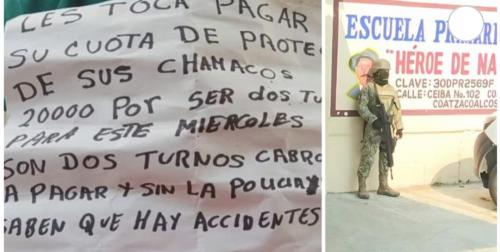 LES TOCA PAGAR
SU CUOTA DE PROTE
DE SUS CHAMACOS
20000 POR SER DOS TU
PARA ESTE MIERCOLES
SON DOS TURNOS CABRO
A PAGAR Y SIN LA
SABEN QUE HAY ACCIDENTES
ESCUELA PRIMARI
"HÉROE DE NA
CLAVE: 30DPR2569F
CALLE: CEIBA No.102 CO
COATZACOALCOS